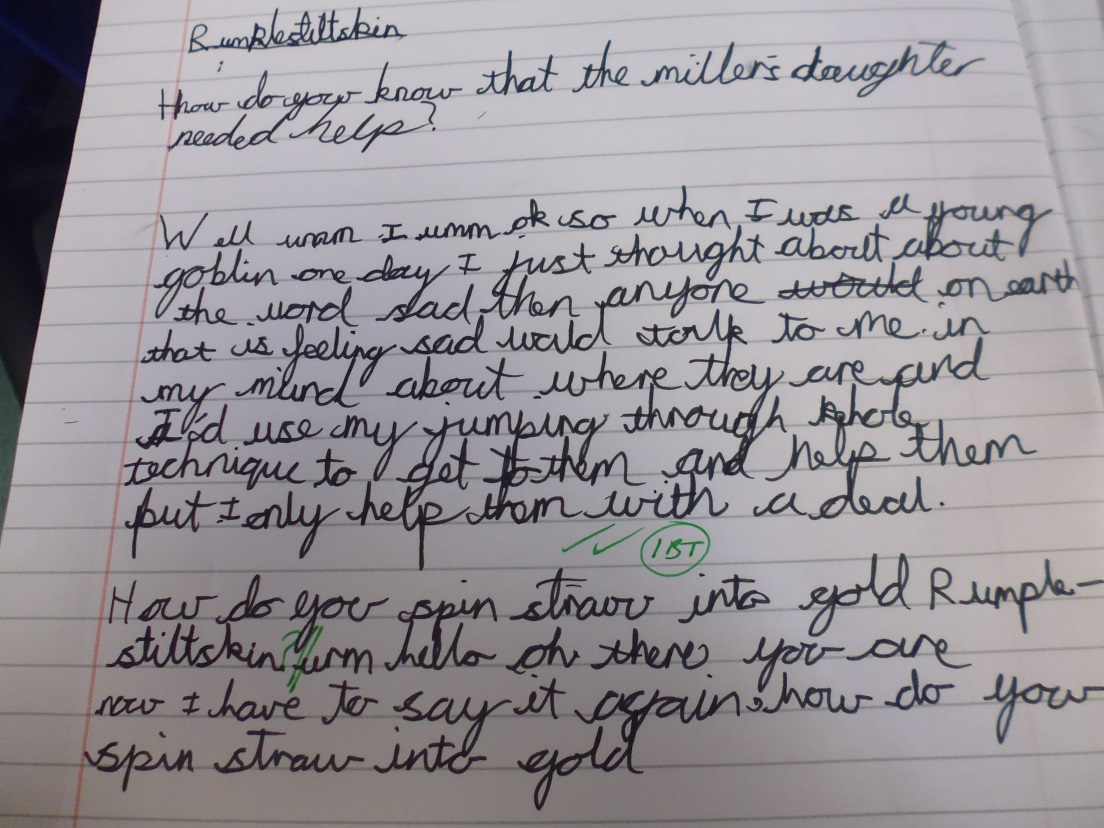 Rumplestiltskin
How do you know that the miller's daughter
needed help?
Well umm I umm ok so when I was a young
goblin one day I just thought about about
the word sad then anyone would on earth
that is feeling sad would talk to me in
my mind about where they are and
I'd use my jumping through hole
technique to get to them and help them
but I only help them with a deal.
1BT
How do you spin straw into gold Rumple-
stiltskin? urm hello oh there you are
now I have to say it again: how do you
spin straw into gold